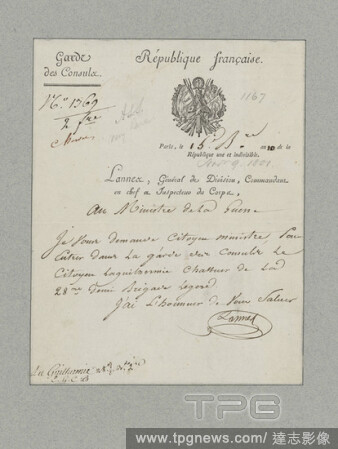 Garde
des Consuls.
République française.
No. 1769
1167
Paris, le 15 B.re an 10 de la
République une et indivisible.
Nov. 9. 1801
Lannes, Général de Division, Commandant
en chef & Inspecteur du Corps,
Au Ministre de la Guerre
Je vous demande Citoyen ministre Pour
entrer dans la garde des Consuls Le
Citoyen Chasseur de La
28me Demi Brigade Legere
J'ai L'honneur de Vous Saluer
Lannes
TPG
www.tpgnews.com/達志影像